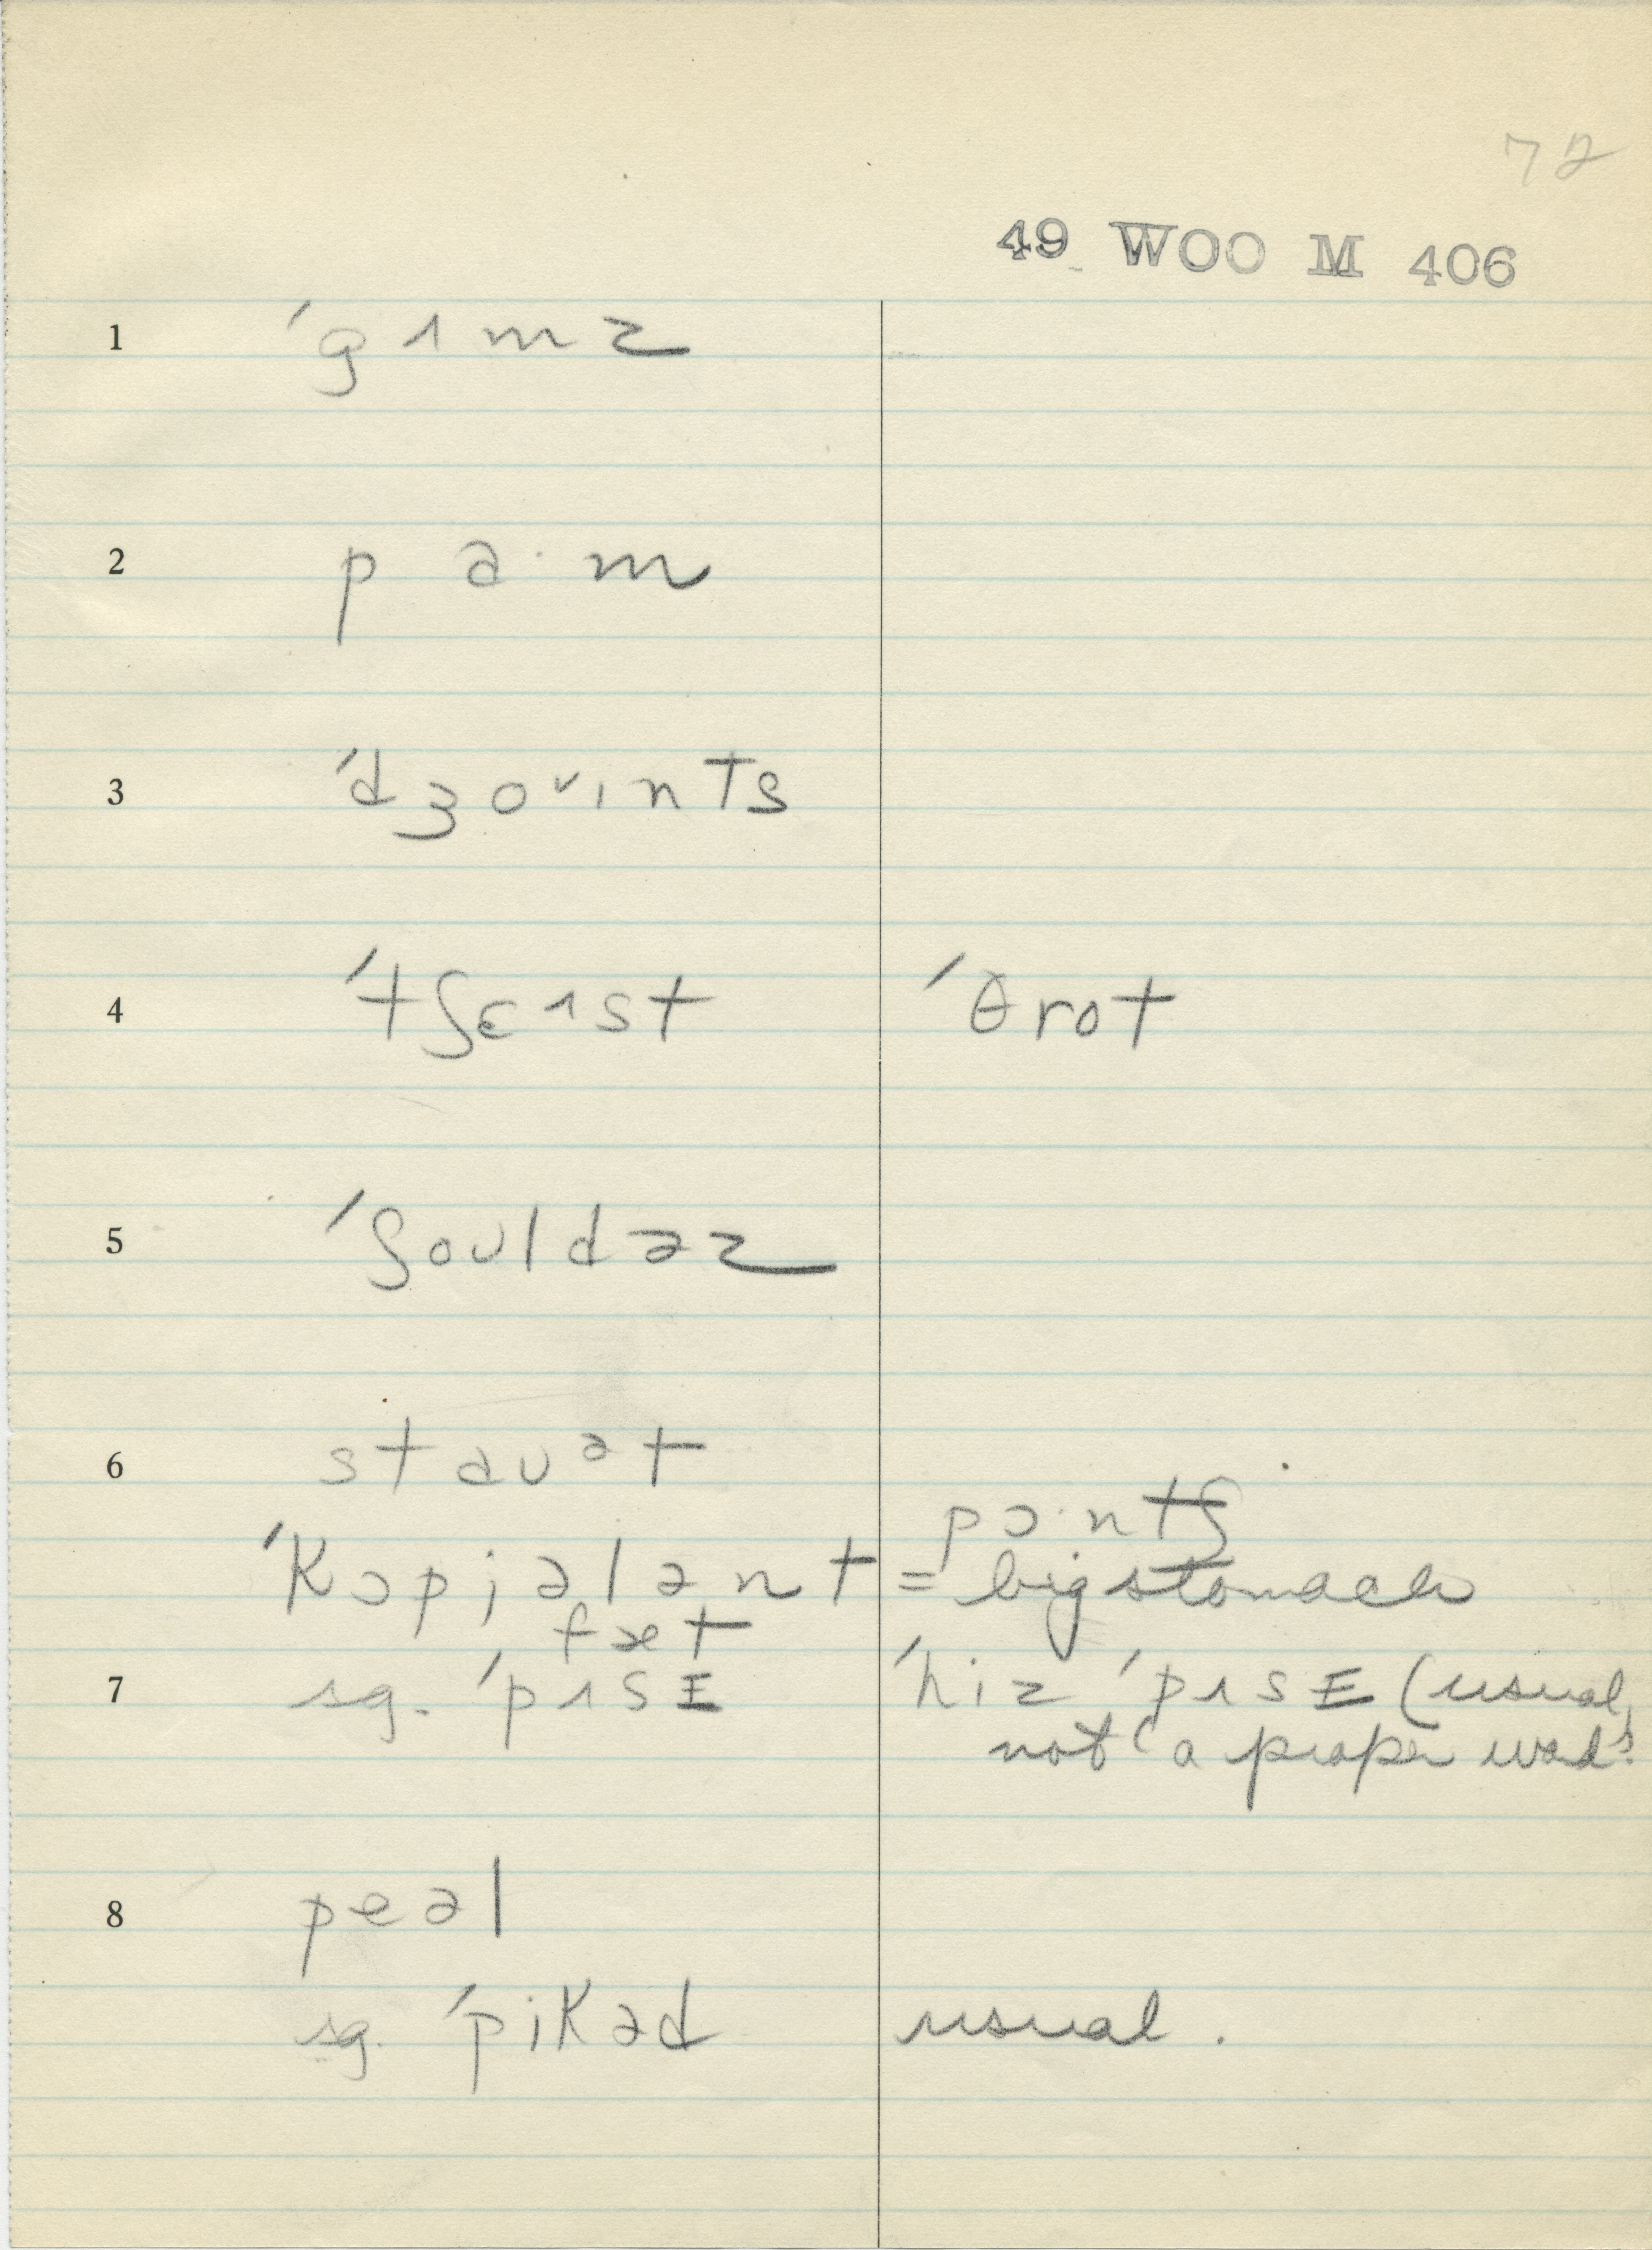 72
49 WOO M 406
1 ˈgɪmz
2 pa·m
3 ˈdʒoᴜɪnts
4 ˈtʃɛɪst ˈθrot
5 ˈʃoʊldəz
6 staʊət
pɔ·ntʃ
ˈkɔpjələnt = big stomach
fæt
7 sg. ˈpɪsE ˈhiz ˈpɪsE (usual,
not "a proper word".
8 peəl
sg. ˈpikəd usual.